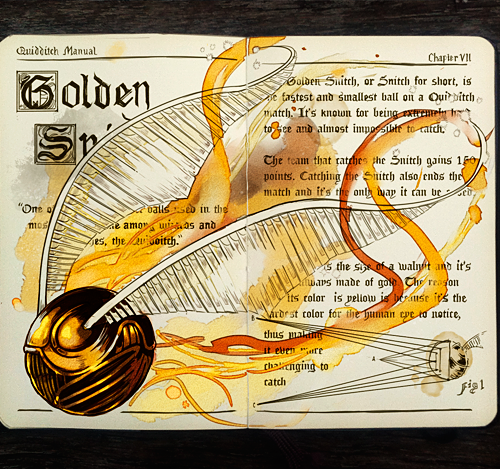 Quidditch Manual
Golden
Sni
"One o balls used in the
mos e among wizards and
es, the Quidditch."
Chapter VII
Golden Snitch, or Snitch for short, is
the fastest and smallest ball on a Quidditch
match. It's known for being extremely hard
to see and almost impossible to catch.
The team that catches the Snitch gains 150
points. Catching the Snitch also ends the
match and it's the only way it can be ed.
is the size of a walnut and it's
always made of gold. The reason
its color is yellow is because it's the
hardest color for the human eye to notice,
thus making
it even more
challenging to
catch
A
C
fig 1